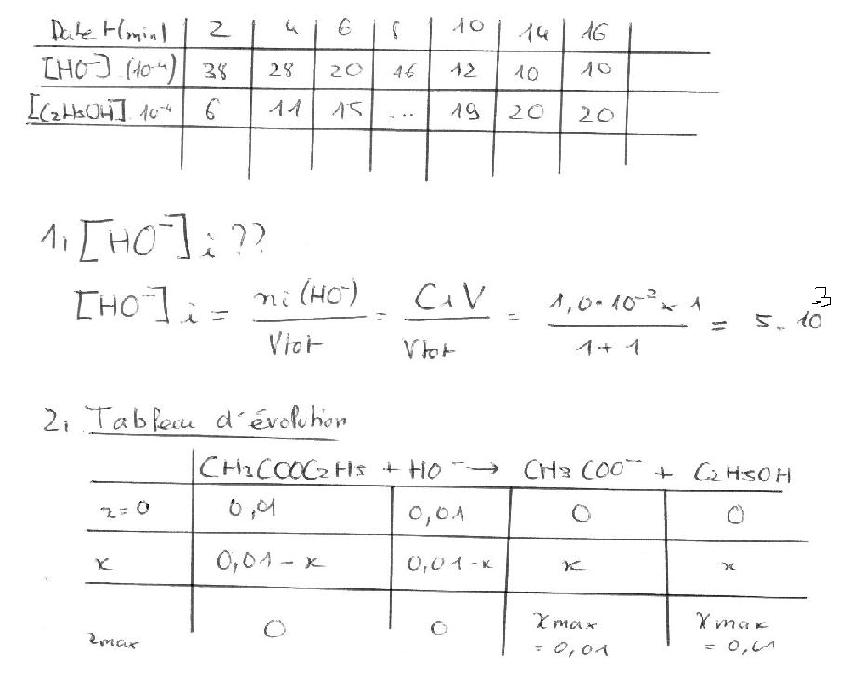 Date t(min) 2 4 6 8 10 14 16
[HO⁻] (10⁻⁴) 38 28 20 16 12 10 10
[C2H5OH] 10⁻⁴ 6 11 15 ... 19 20 20
1, [HO⁻]i ??
[HO⁻]i = ni (HO⁻) / Vtot = C1V / Vtot = 1,0.10⁻² x 1 / 1 + 1 = 5. 10⁻³
2, Tableau d'évolution
CH3COOC2H5 + HO⁻ → CH3COO⁻ + C2H5OH
x=0 0,01 0,01 0 0
x 0,01-x 0,01-x x x
xmax 0 0 xmax = 0,01 xmax = 0,01